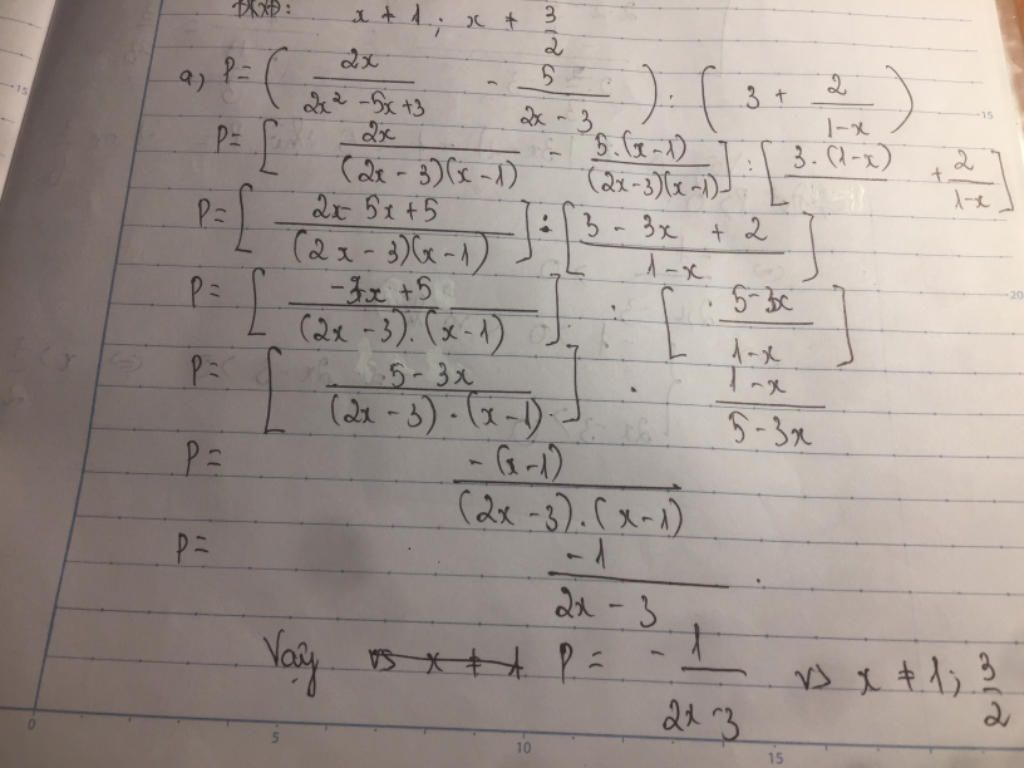 ĐKXĐ: x ≠ 1; x ≠ 3/2
a, P = ( 2x/(2x² - 5x + 3) - 5/(2x - 3) ) : ( 3 + 2/(1-x) )
P = [ 2x/((2x - 3)(x - 1)) - 5.(x-1)/((2x-3)(x-1)) ] : [ 3.(1-x) + 2/(1-x) ]
P = [ (2x 5x + 5)/((2x - 3)(x - 1)) ] : [ (3 - 3x + 2)/(1-x) ]
P = [ (-3x + 5)/((2x - 3).(x - 1)) ] : [ (5-3x)/(1-x) ]
P = [ (5 - 3x)/((2x - 3).(x - 1)) ] . (1-x)/(5-3x)
P = -(x-1)/((2x - 3).(x-1))
P = -1/(2x - 3).
Vậy P = - 1/(2x-3) vs x ≠ 1; 3/2
-15
-15
-20
0 5 10 15